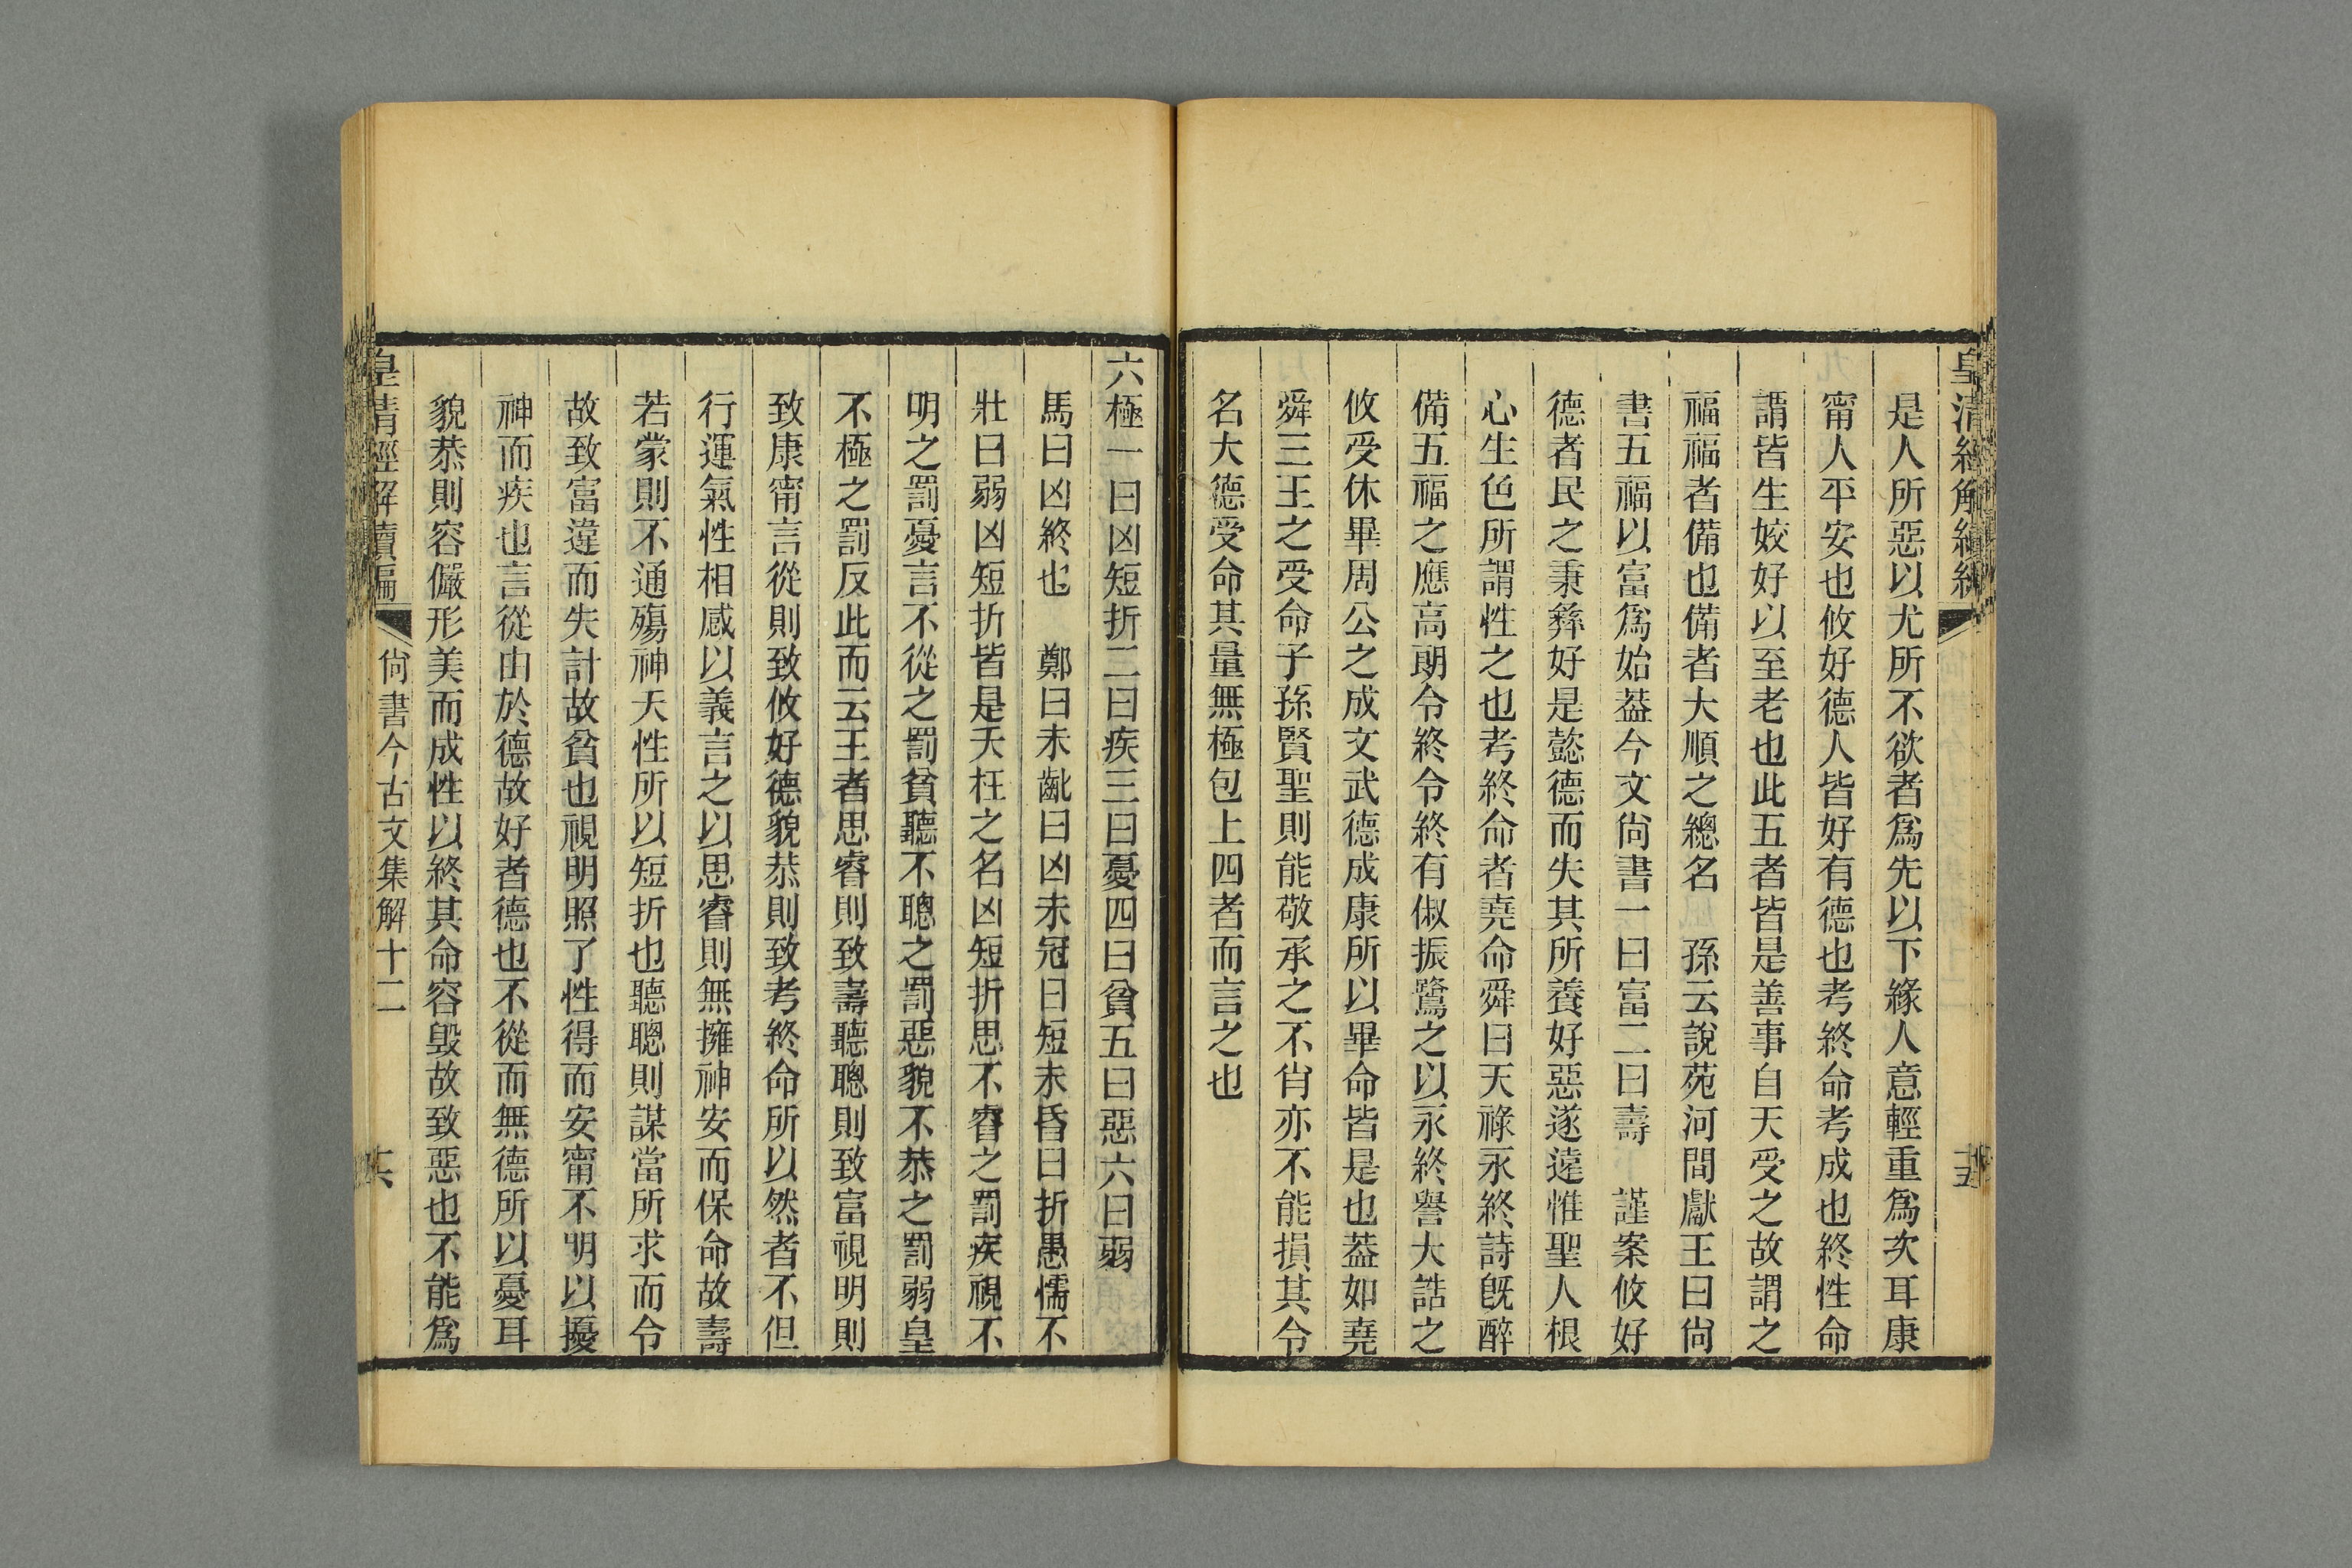 皇清經解續編
十五
是人所惡以尤所不欲者爲先以下緣人意輕重爲次耳康
甯人平安也攸好德人皆好有德也考終命考成也終性命
謂皆生姣好以至老也此五者皆是善事自天受之故謂之
福福者備也備者大順之總名　孫云說苑河間獻王曰尙
書五福以富爲始葢今文尙書一曰富二曰壽　謹案攸好
德者民之秉彝好是懿德而失其所養好惡遂遠惟聖人根
心生色所謂性之也考終命者堯命舜曰天祿永終詩旣醉
備五福之應高朗令終令終有俶振鷺之以永終譽大誥之
攸受休畢周公之成文武德成康所以畢命皆是也葢如堯
舜三王之受命子孫賢聖則能敬承之不肖亦不能損其令
名大德受命其量無極包上四者而言之也
六極一曰凶短折二曰疾三曰憂四曰貧五曰惡六曰弱
馬曰凶終也　鄭曰未齓曰凶未冠曰短未昏曰折愚懦不
壯曰弱凶短折皆是夭枉之名凶短折思不睿之罰疾視不
明之罰憂言不從之罰貧聽不聰之罰惡貌不恭之罰弱皇
不極之罰反此而云王者思睿則致壽聽聰則致富視明則
致康甯言從則致攸好德貌恭則致考終命所以然者不但
行運氣性相感以義言之以思睿則無擁神安而保命故壽
若蒙則不通殤神夭性所以短折也聽聰則謀當所求而令
故致富違而失計故貧也視明照了性得而安甯不明以擾
神而疾也言從由於德故好者德也不從而無德所以憂耳
貌恭則容儼形美而成性以終其命容毀故致惡也不能爲
皇清經解續編
尙書今古文集解十二
十六